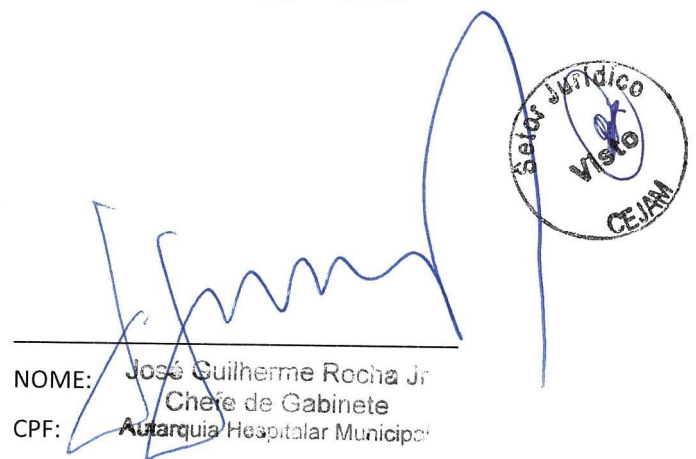 Setor Jurídico
Visto
CEJAM
NOME: José Guilherme Rocha Jr
Chefe de Gabinete
CPF: Autarquia Hospitalar Municipal